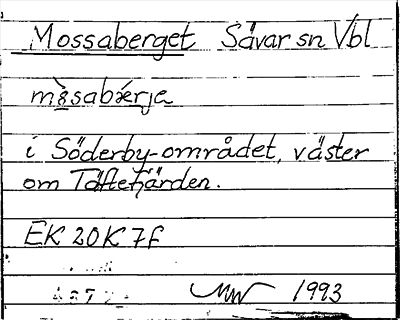 Mossaberget Sävar sn Vbl
i Söderby-området, väster
om Täftefjärden.
EK 20K 7f
1993